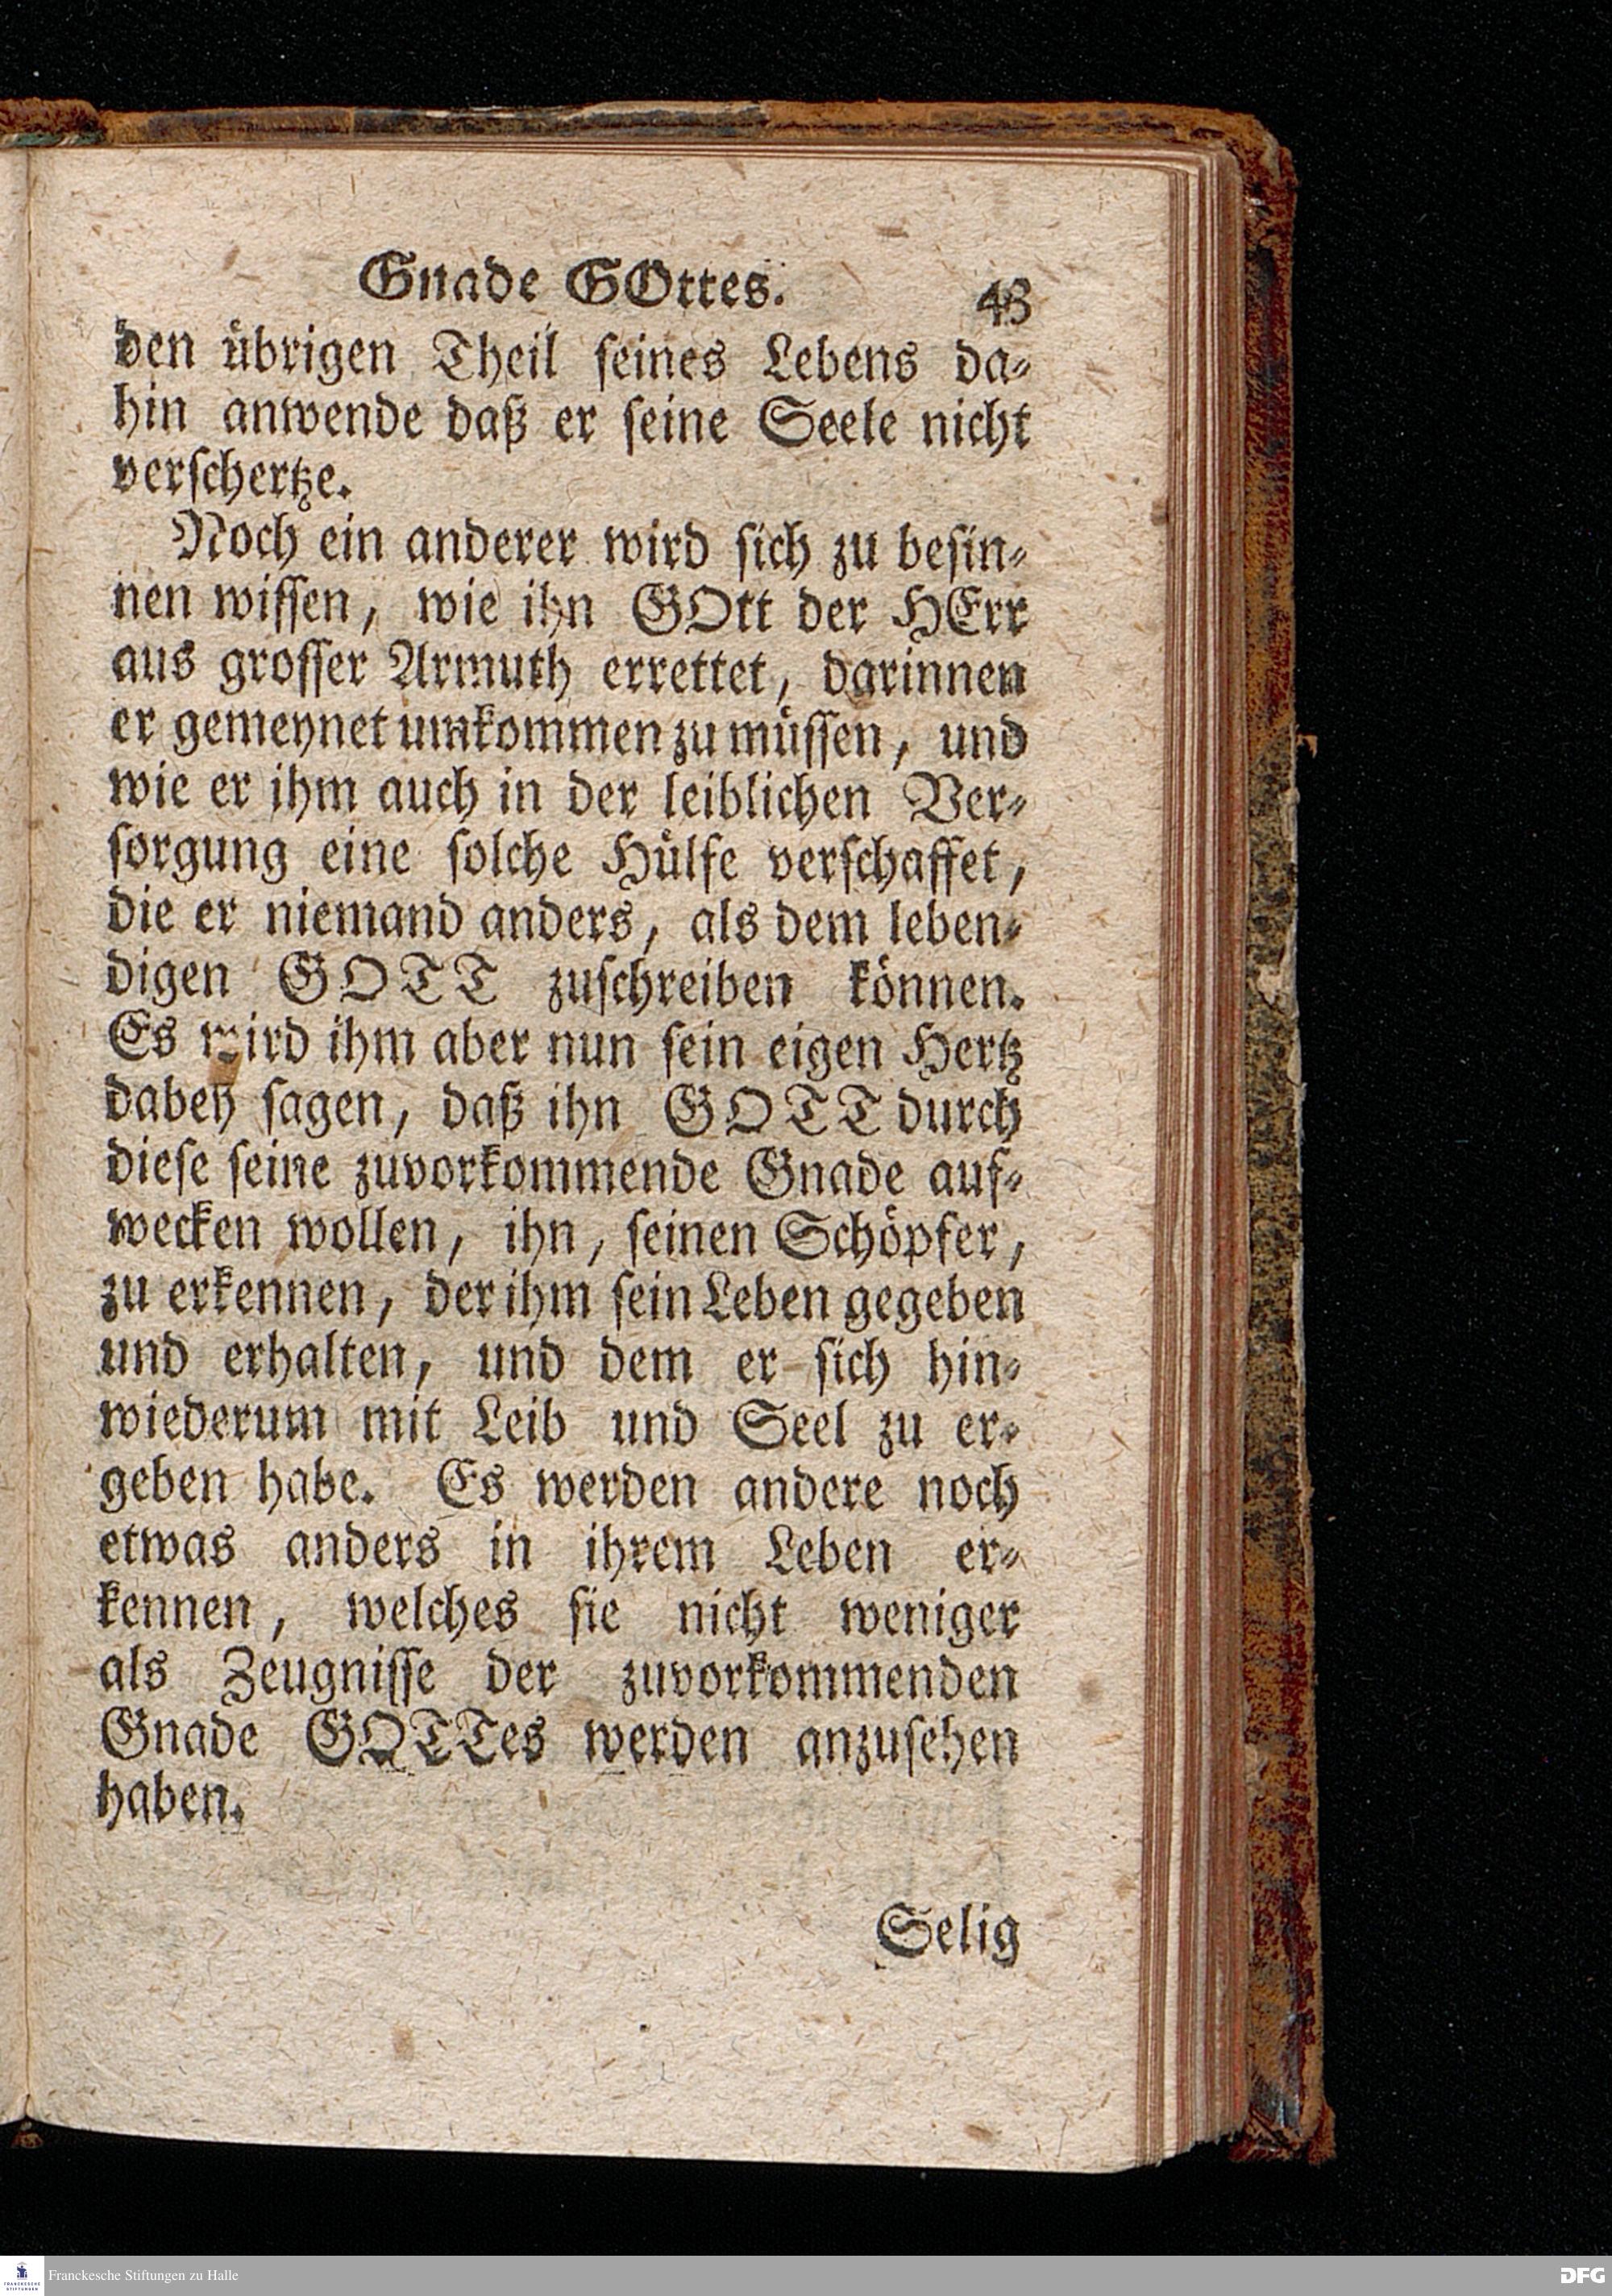 Gnade GOttes. 43
den übrigen Theil seines Lebens da-
hin anwende daß er seine Seele nicht
verschertze.
Noch ein anderer wird sich zu besin-
nen wissen, wie ihn GOtt der HErr
aus grosser Armuth errettet, darinnen
er gemeynet umkommen zu müssen, und
wie er ihm auch in der leiblichen Ver-
sorgung eine solche Hülfe verschaffet,
die er niemand anders, als dem leben-
digen GOTT zuschreiben können.
Es wird ihm aber nun sein eigen Hertz
dabey sagen, daß ihn GOTT durch
diese seine zuvorkommende Gnade auf-
wecken wollen, ihn, seinen Schöpfer,
zu erkennen, der ihm sein Leben gegeben
und erhalten, und dem er sich hin-
wiederum mit Leib und Seel zu er-
geben habe. Es werden andere noch
etwas anders in ihrem Leben er-
kennen, welches sie nicht weniger
als Zeugnisse der zuvorkommenden
Gnade GOTTes werden anzusehen
haben.
Selig
FRANCKESCHE
STIFTUNGEN
Franckesche Stiftungen zu Halle
DFG